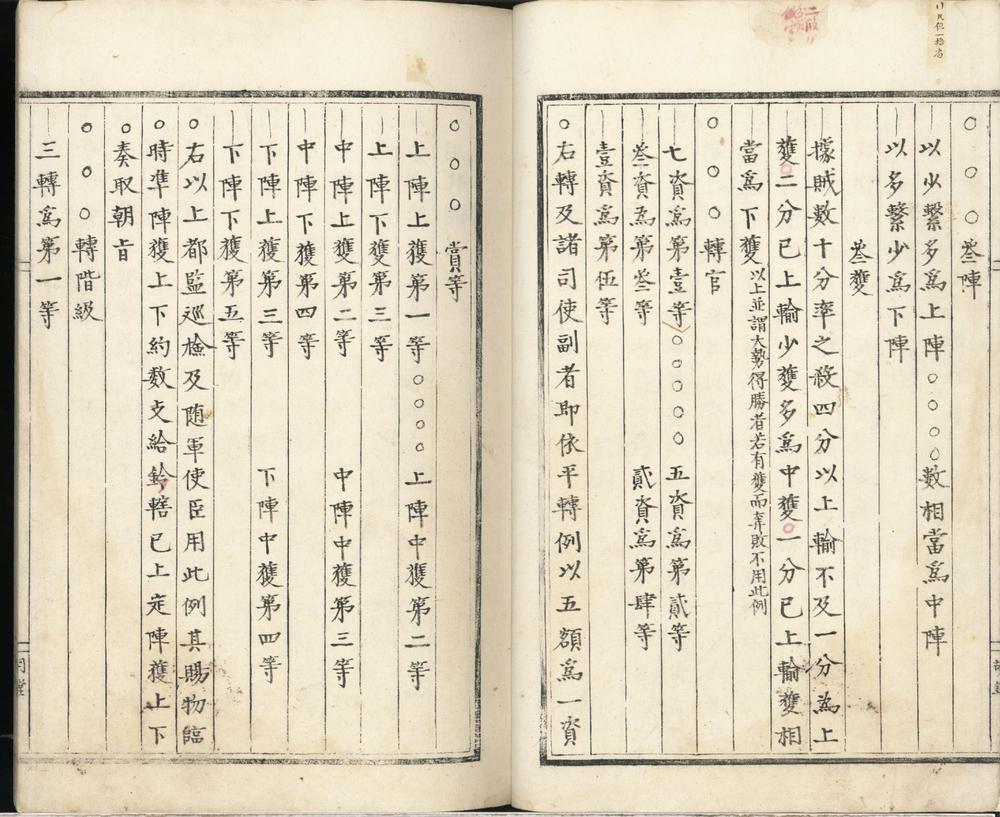 ○○○叄陣
以少擊多爲上陣○○○○數相當爲中陣
以多擊少爲下陣
叄獲
據賊數十分率之殺四分以上輸不及一分為上
獲二分已上輸少獲多爲中獲一分已上輸獲相
當爲下獲以上並謂大勢得勝者若有獲而奔敗不用此例
○○○轉官
七資爲第壹等○○○○五資爲第貳等
叄資爲第叄等 貳資爲第肆等
壹資爲第伍等
○右轉及諸司使副者即依平轉例以五額爲一資
○○○賞等
上陣上獲第一等○○○○上陣中獲第二等
上陣下獲第三等
中陣上獲第二等 中陣中獲第三等
中陣下獲第四等
下陣上獲第三等 下陣中獲第四等
下陣下獲第五等
○右以上都監巡檢及随軍使臣用此例其賜物臨
○時準陣獲上下約数支給鈐轄已上定陣獲上下
○奏取朝旨
○○○轉階級
三轉爲第一等